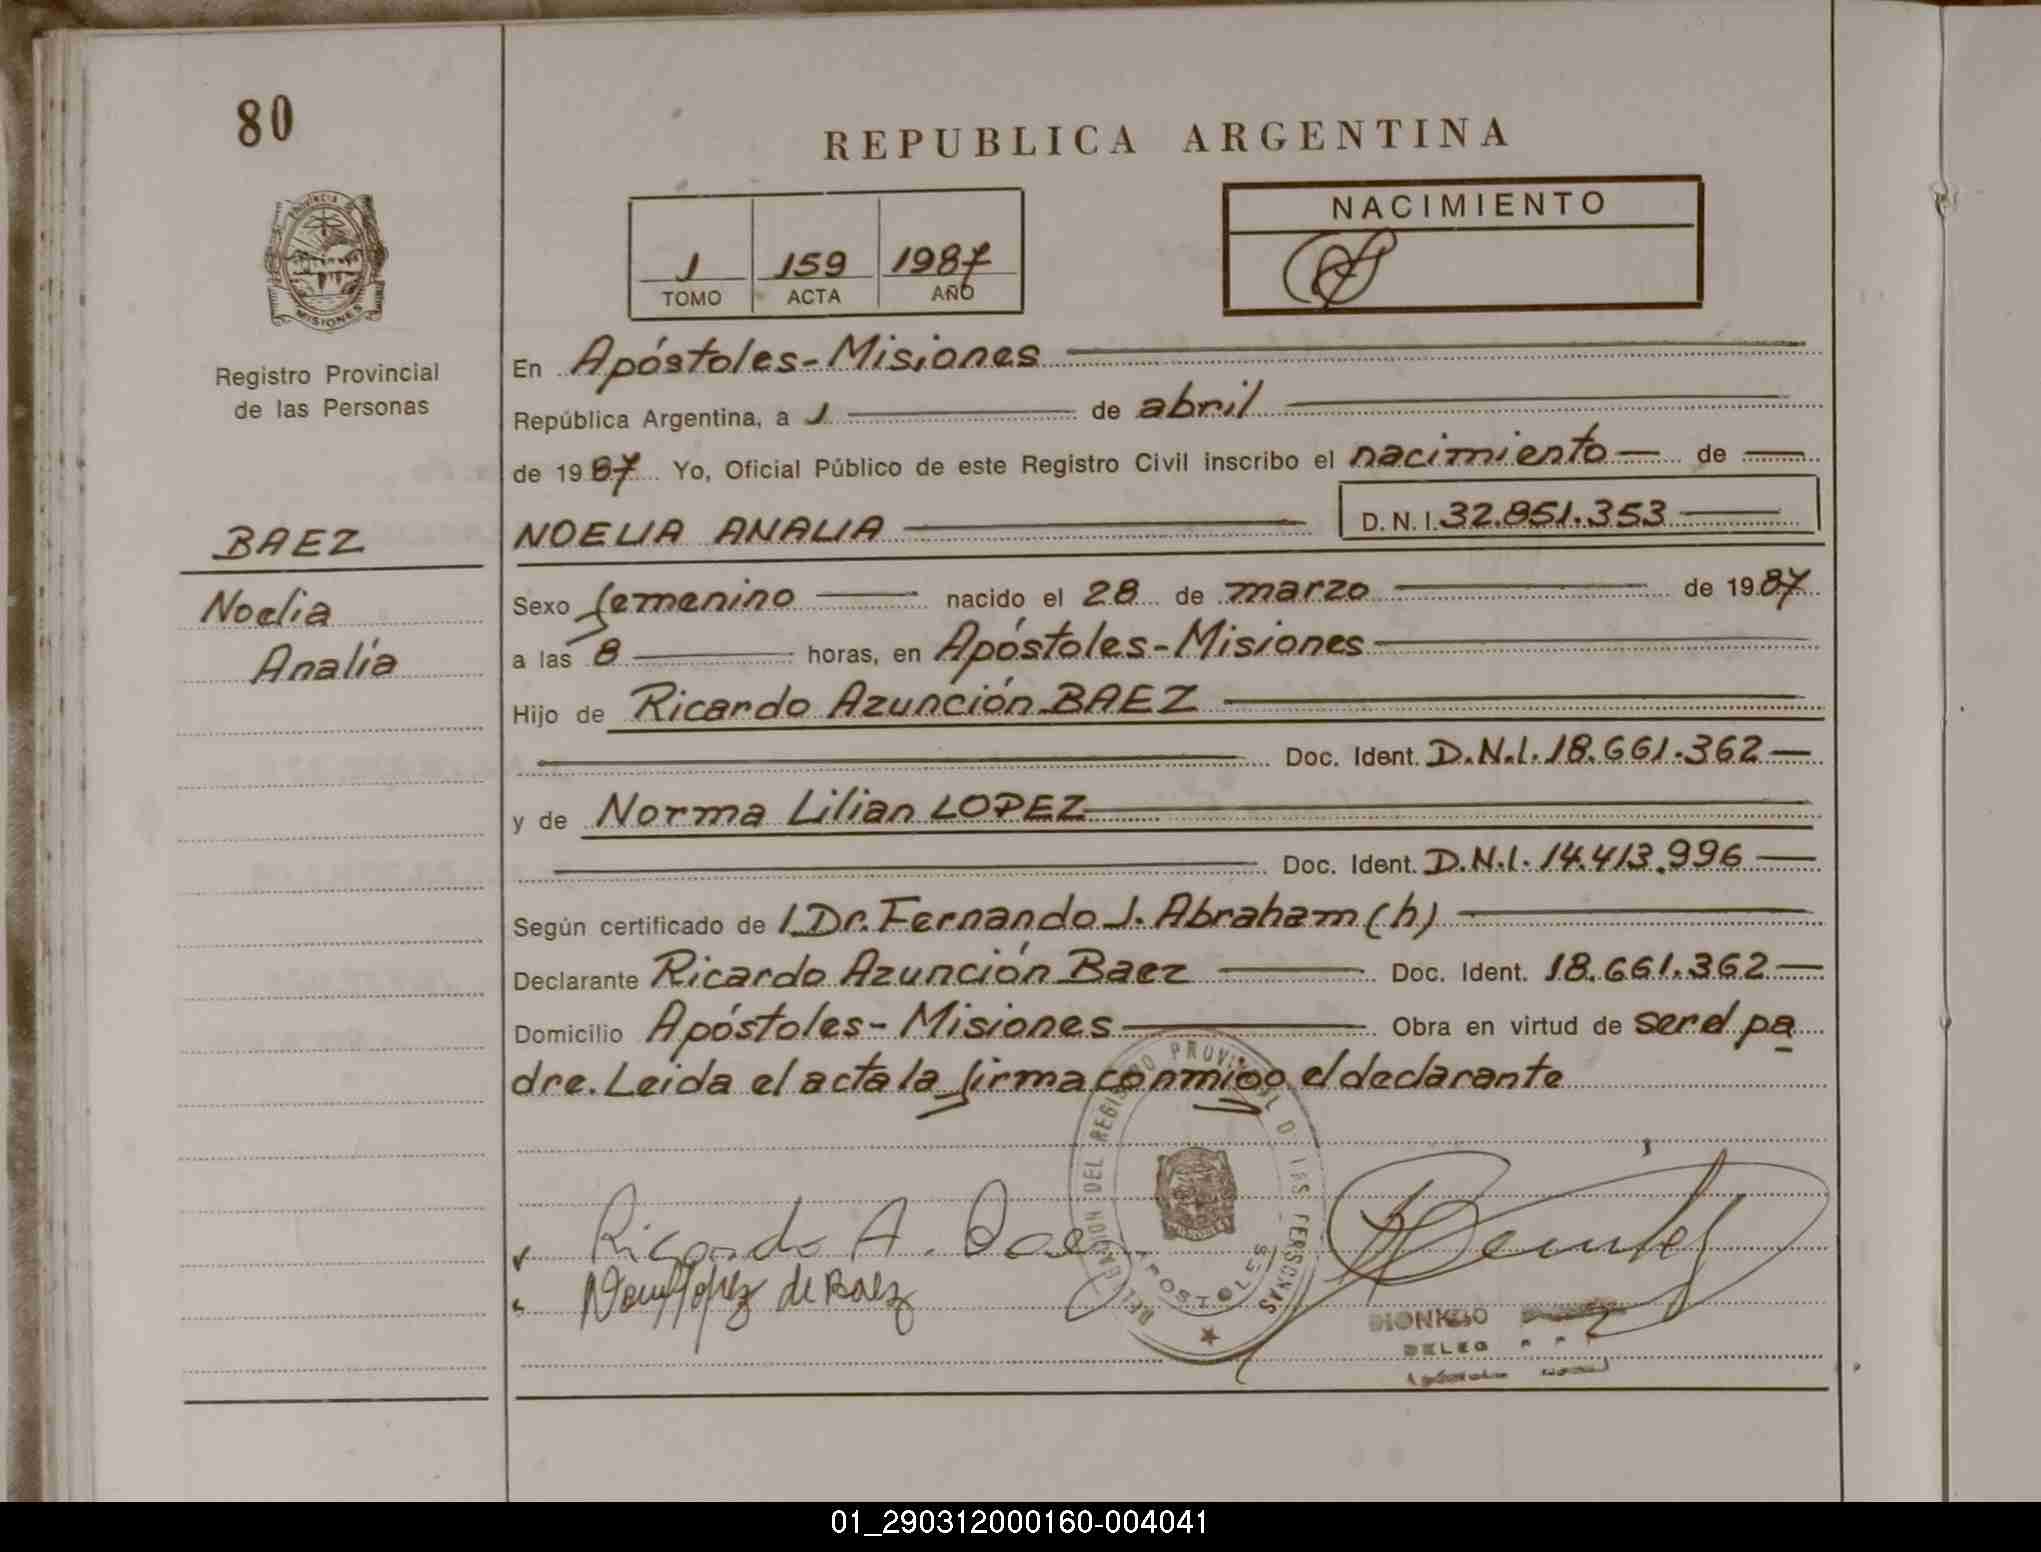 80
REPUBLICA ARGENTINA
MISIONES
Registro Provincial
de las Personas
1 159 1987
TOMO ACTA AÑO
NACIMIENTO
En Apóstoles-Misiones
República Argentina, a 1 de abril
de 1987 Yo, Oficial Público de este Registro Civil inscribo el nacimiento de
BAEZ
Noelia
Analía
NOELIA ANALIA D.N.I. 32.851.353
Sexo femenino nacido el 28 de marzo de 1987
a las 8 horas, en Apóstoles-Misiones
Hijo de Ricardo Azunción BAEZ
Doc. Ident. D.N.I. 18.661.362
y de Norma Lilian LOPEZ
Doc. Ident. D.N.I. 14.413.996
Según certificado de l Dr. Fernando J. Abraham (h)
Declarante Ricardo Azunción Baez Doc. Ident. 18.661.362
Domicilio Apóstoles-Misiones Obra en virtud de ser el pa
dre. Leida el acta la firma conmigo el declarante
DELEGACION DEL REGISTRO PROVINCIAL D LAS PERSONAS
APOSTOLES
Ricardo A. Baez
Lopez de Baez
DELEG
01_290312000160-004041